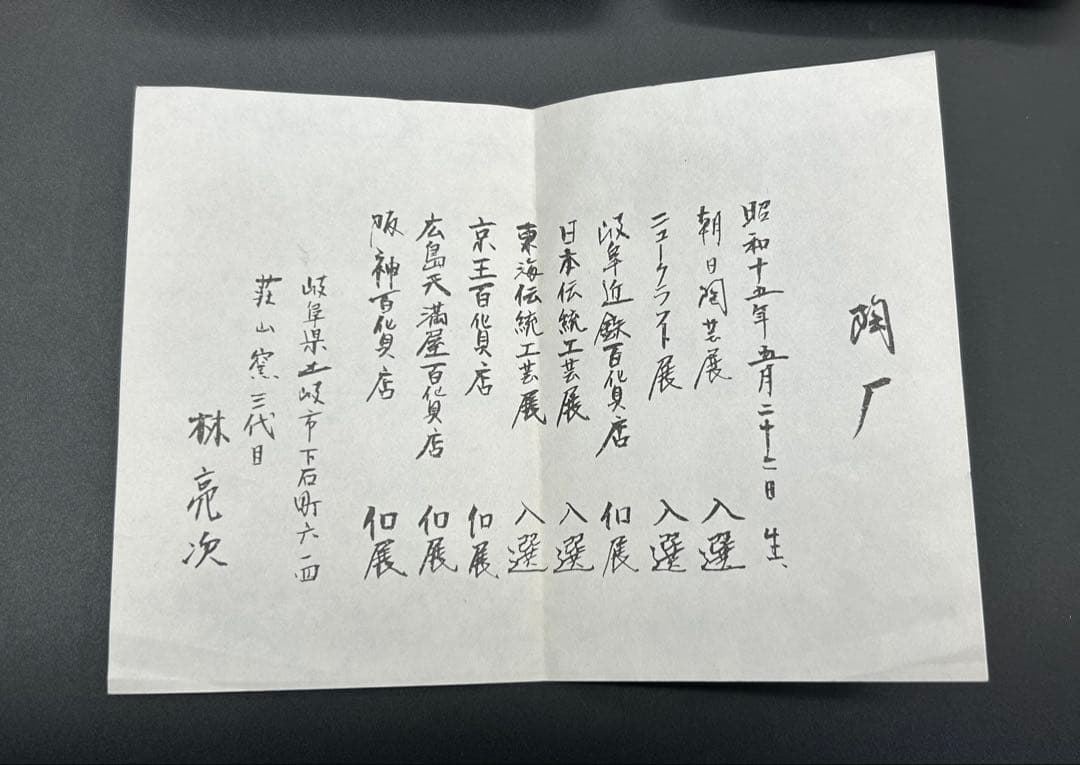 陶厂
昭和十五年五月二十二日生
朝日陶芸展 入選
ニュークラフト展 入選
岐阜近鉄百貨店 個展
日本伝統工芸展 入選
東海伝統工芸展 入選
京王百貨店 個展
広島天満屋百貨店 個展
阪神百貨店 個展
岐阜県土岐市下石町六一四
荘山窯三代目
林亮次